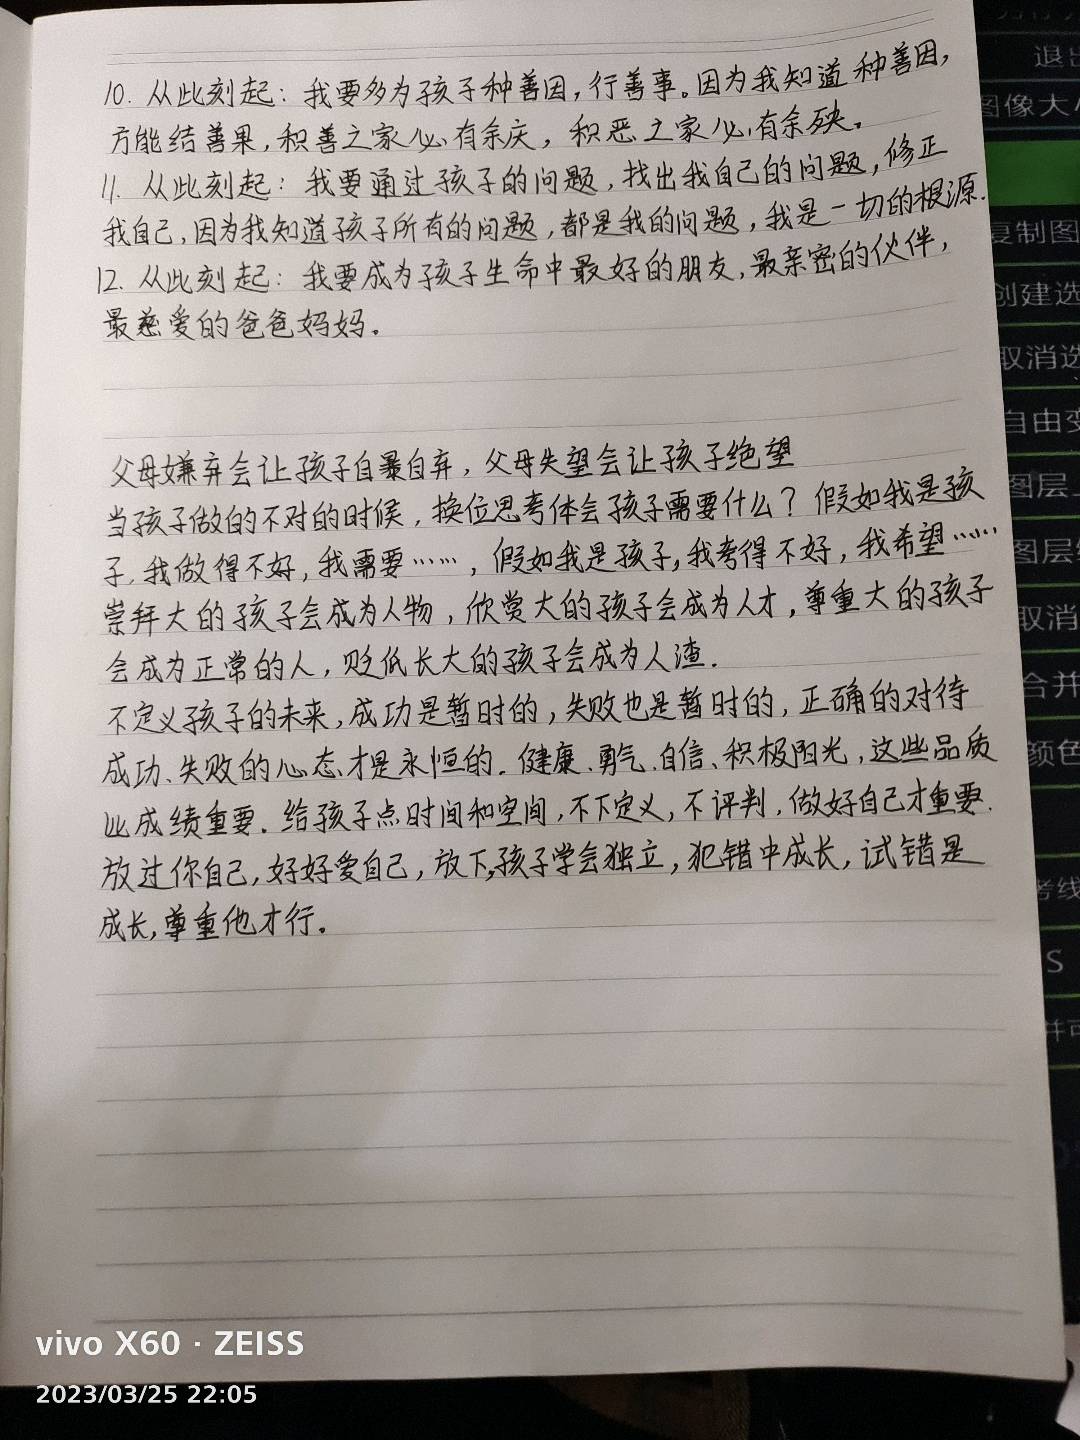 10. 从此刻起：我要多为孩子种善因，行善事。因为我知道种善因，
方能结善果，积善之家必有余庆，积恶之家必有余殃。
11. 从此刻起：我要通过孩子的问题，找出我自己的问题，修正
我自己，因为我知道孩子所有的问题，都是我的问题，我是一切的根源.
12. 从此刻起：我要成为孩子生命中最好的朋友，最亲密的伙伴，
最慈爱的爸爸妈妈。
父母嫌弃会让孩子自暴自弃，父母失望会让孩子绝望
当孩子做的不对的时候，换位思考体会孩子需要什么？假如我是孩
子,我做得不好，我需要……，假如我是孩子,我考得不好，我希望……
崇拜大的孩子会成为人物，欣赏大的孩子会成为人才，尊重大的孩子
会成为正常的人，贬低长大的孩子会成为人渣.
不定义孩子的未来，成功是暂时的，失败也是暂时的，正确的对待
成功、失败的心态才是永恒的. 健康、勇气、自信、积极阳光，这些品质
比成绩重要. 给孩子点时间和空间，不下定义，不评判，做好自己才重要.
放过你自己，好好爱自己，放下,孩子学会独立，犯错中成长，试错是
成长，尊重他才行。
退出
图像大小
复制图
创建选
取消选
自由变
图层
图层
取消
合并
颜色
考线
S
并可
vivo X60 · ZEISS
2023/03/25 22:05